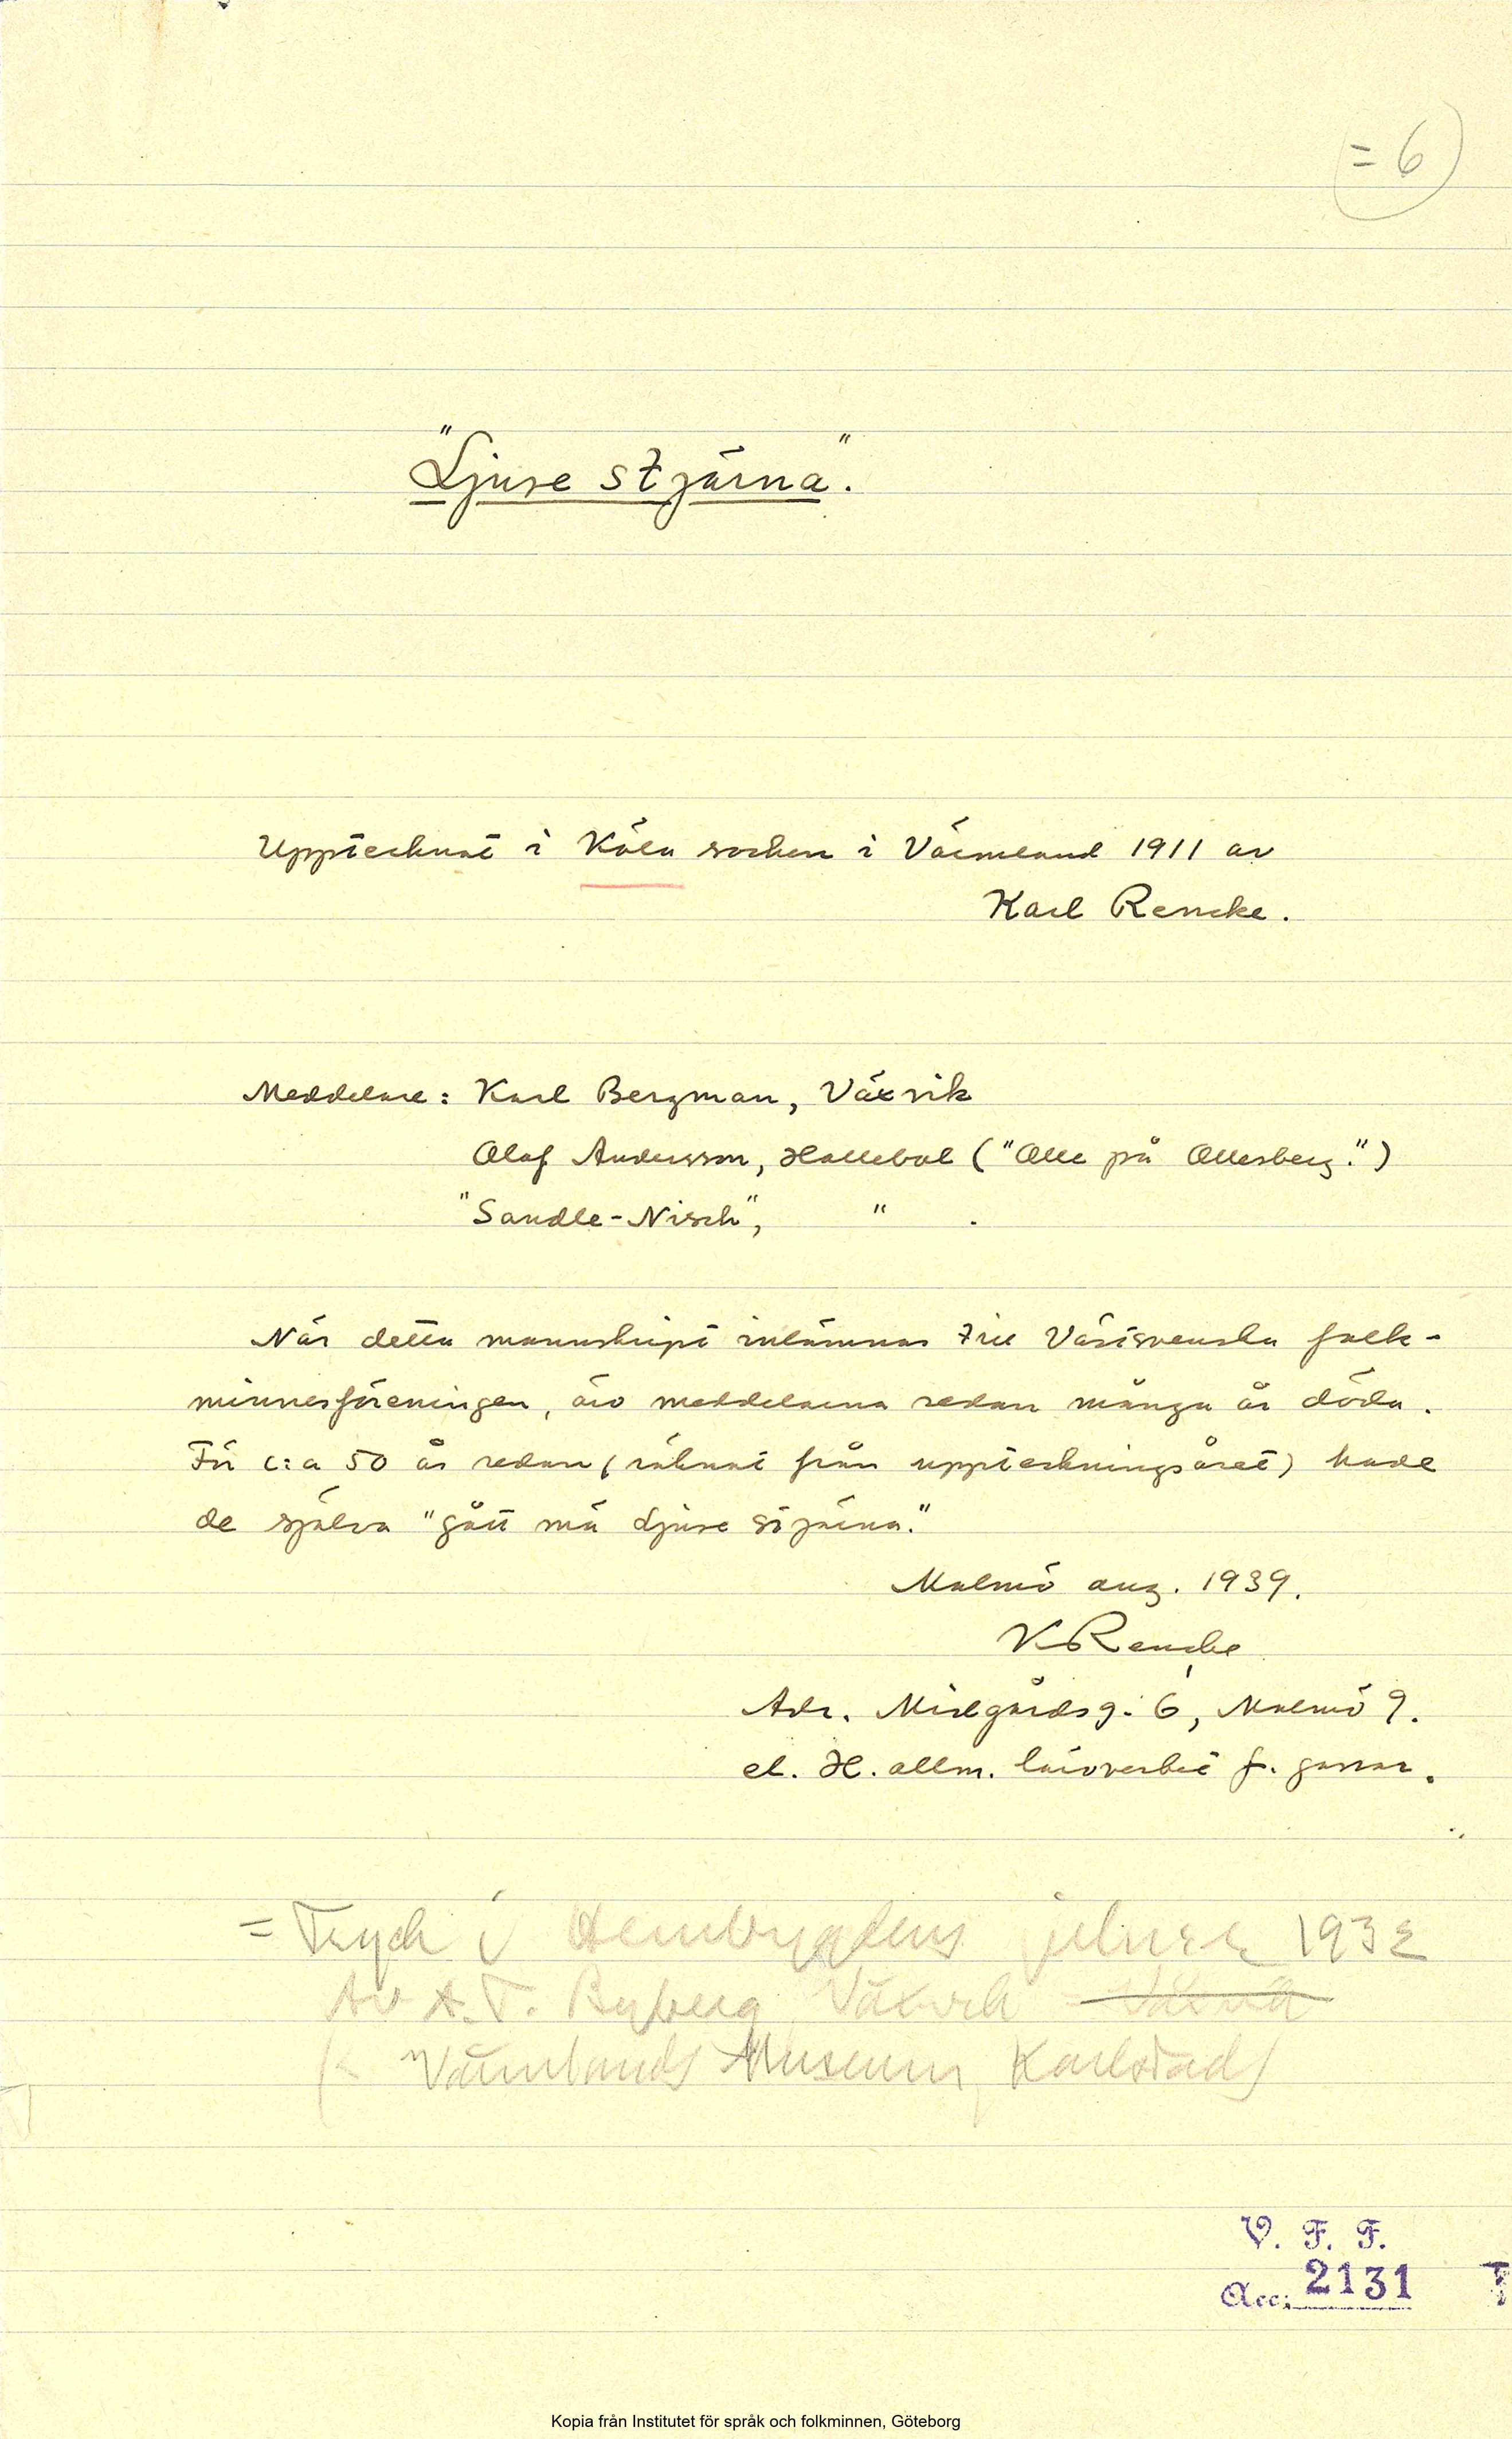 = 6
"Ljuse stjärna".
Upptecknat i Köla socken i Värmland 1911 av
Karl Rencke.
Meddelare: Karl Bergman, Växvik
Olof Andersson, Hallebol ("Olle på Ollesberg.")
"Sandle-Nisch", " .
När detta manuskript inlämnas till Västsvenska folk-
minnesföreningen, äro meddelarna redan många år döda.
För c:a 50 år sedan (räknat från uppteckningsåret) hade
de själva "gått mä Ljuse stjärna."
Malmö aug. 1939.
K Rencke
Adr. Midgårdsg. 6, Malmö 9.
el. H. allm. läroverket f. gossar.
= Tryck i Hembygdens 1932
Av A. T. Byberg, Växvik
Värmlands Museum, Karlstad)
V. F. F.
Acc: 2131
Kopia från Institutet för språk och folkminnen, Göteborg